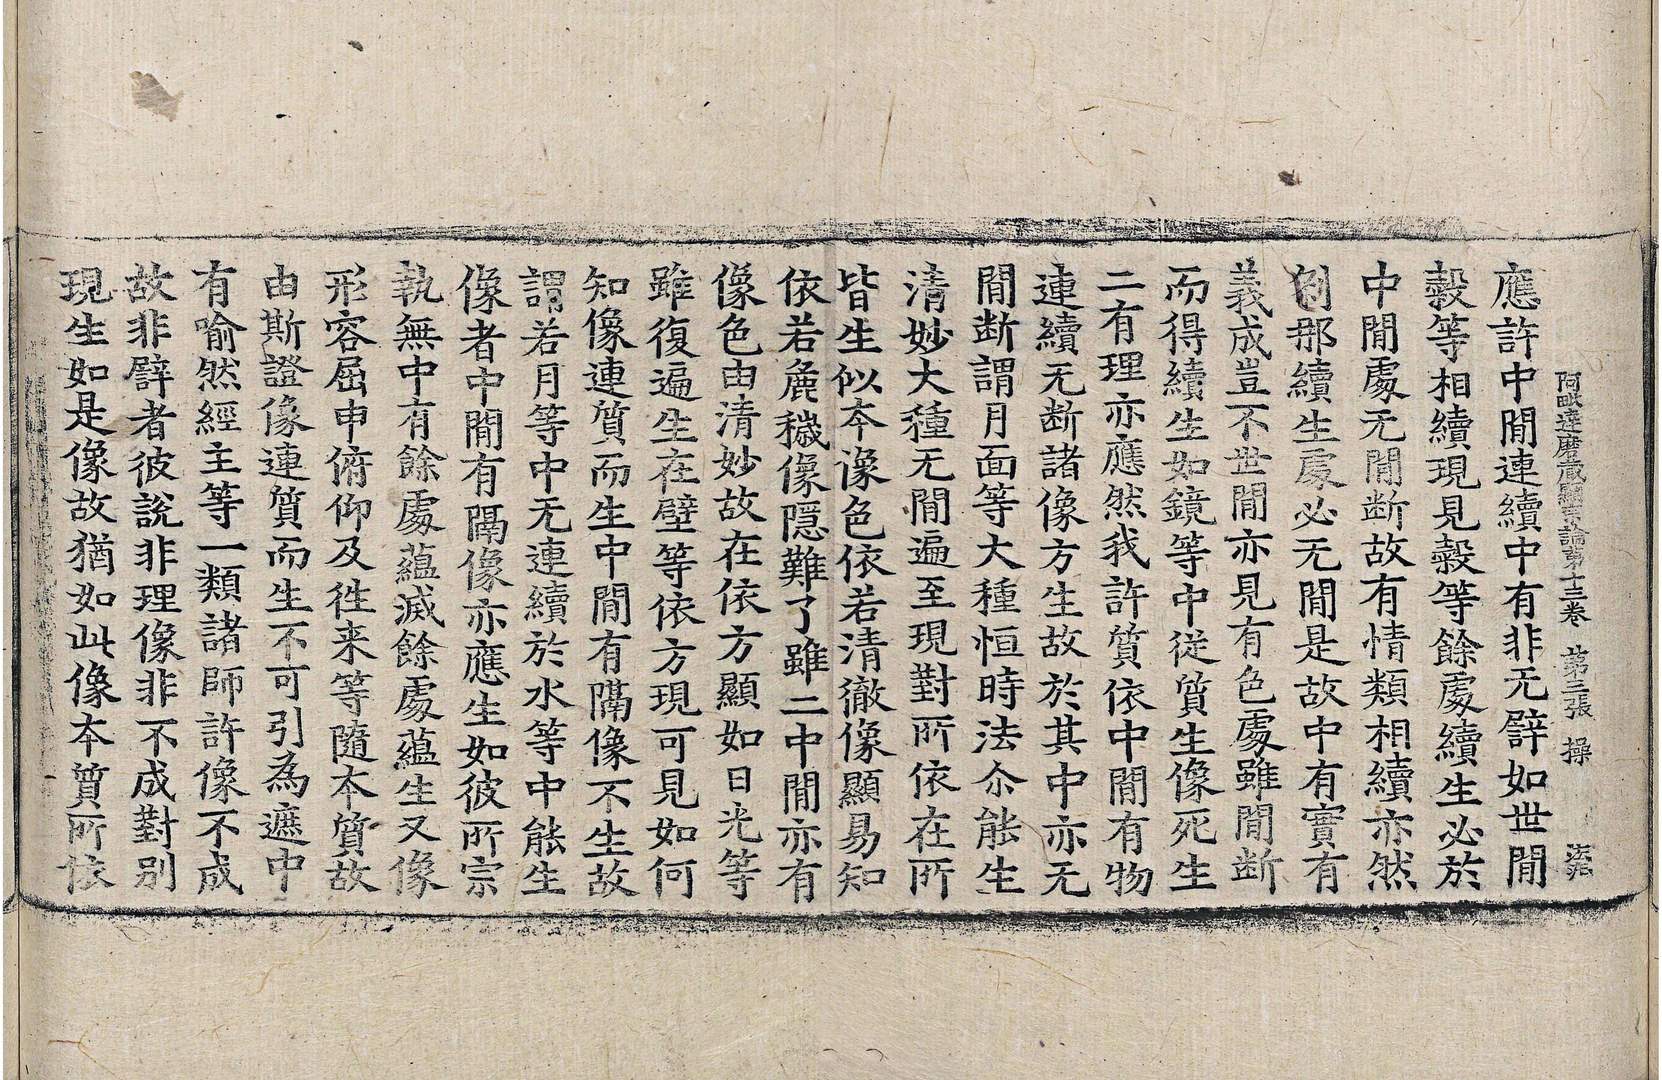 阿毗達磨藏顯宗論第十三卷　第三張　操
應許中閒連續中有非无譬如世閒
穀等相續現見穀等餘處續生必於
中閒處无閒断故有情類相續亦然
刹那續生處必无閒是故中有實有
義成豈不世閒亦見有色處雖閒断
而得續生如鏡等中從質生像死生
二有理亦應然我許質依中閒有物
連續无断諸像方生故於其中亦无
閒断謂月面等大種恒時法尒能生
清妙大種无閒遍至現對所依在所
皆生似本像色依若清徹像顯易知
依若麁穢像隱難了雖二中閒亦有
像色由清妙故在依方顯如日光等
雖復遍生在壁等依方現可見如何
知像連質而生中閒有隔像不生故
謂若月等中无連續於水等中能生
像者中閒有隔像亦應生如彼所宗
執無中有餘處蘊滅餘處蘊生又像
形容屈申俯仰及徃来等隨本質故
由斯證像連質而生不可引為遮中
有喻然經主等一類諸師許像不成
故非譬者彼說非理像非不成對別
現生如是像故猶如此像本質所依